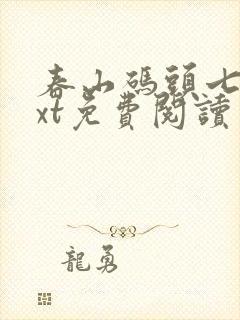 春山碼頭七
xt免費閱讀
龍勇